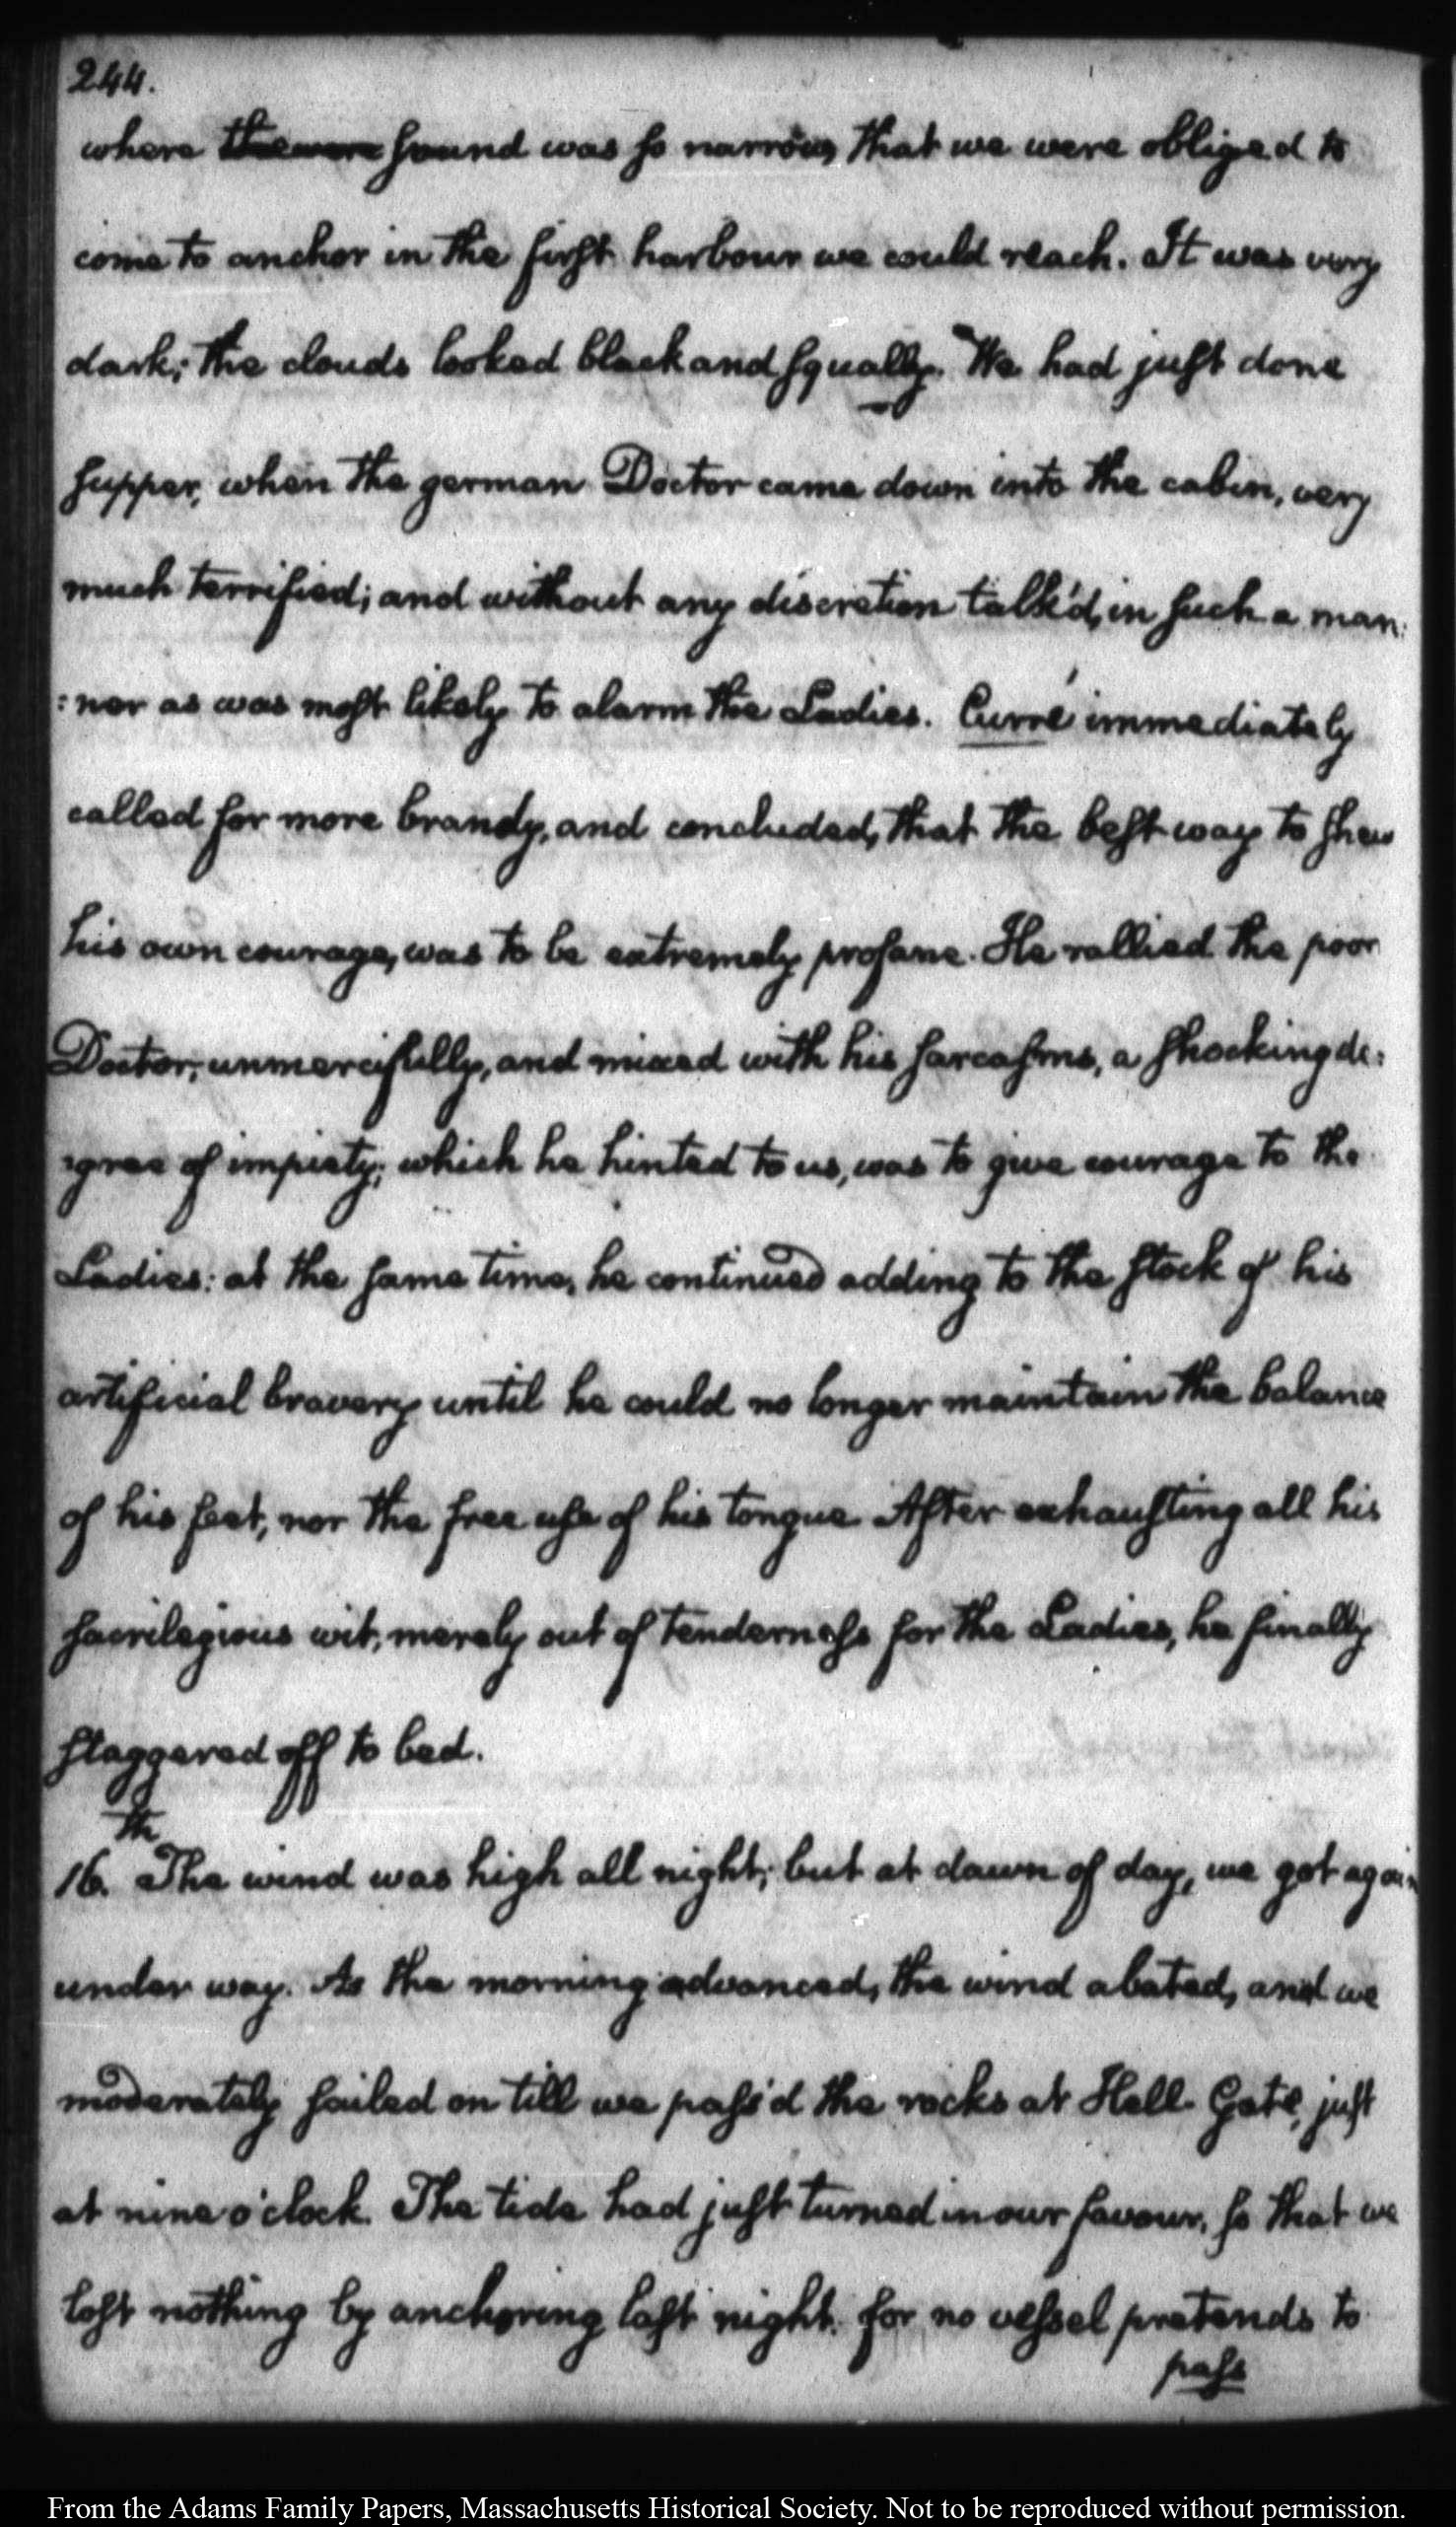 244.
where sound was so narrow, that we were obliged to
come to anchor in the first harbour we could reach. It was very
dark; the clouds looked black and squally. We had just done
supper, when the german Doctor came down into the cabin, very
much terrified; and without any discretion talk'd, in such a man:
:ner as was most likely to alarm the Ladies. Curré immediately
called for more brandy, and concluded, that the best way to shew
his own courage, was to be extremely profane. He rallied the poor
Doctor, unmercifully, and mixed with his sarcasms, a shocking de:
:gree of impiety; which he hinted to us, was to give courage to the
Ladies: at the same time, he continued adding to the stock of his
artificial bravery until he could no longer maintain the balance
of his feet, nor the free use of his tongue. After exhausting all his
sacrilegious wit, merely out of tenderness for the Ladies, he finally
staggered off to bed.
16.th The wind was high all night; but at dawn of day, we got again
under way. As the morning advanced, the wind abated, and we
moderately sailed on till we pass'd the rocks at Hell-Gate, just
at nine o'clock. The tide had just turned in our favour, so that we
lost nothing by anchoring last night. for no vessel pretends to
pass
From the Adams Family Papers, Massachusetts Historical Society. Not to be reproduced without permission.